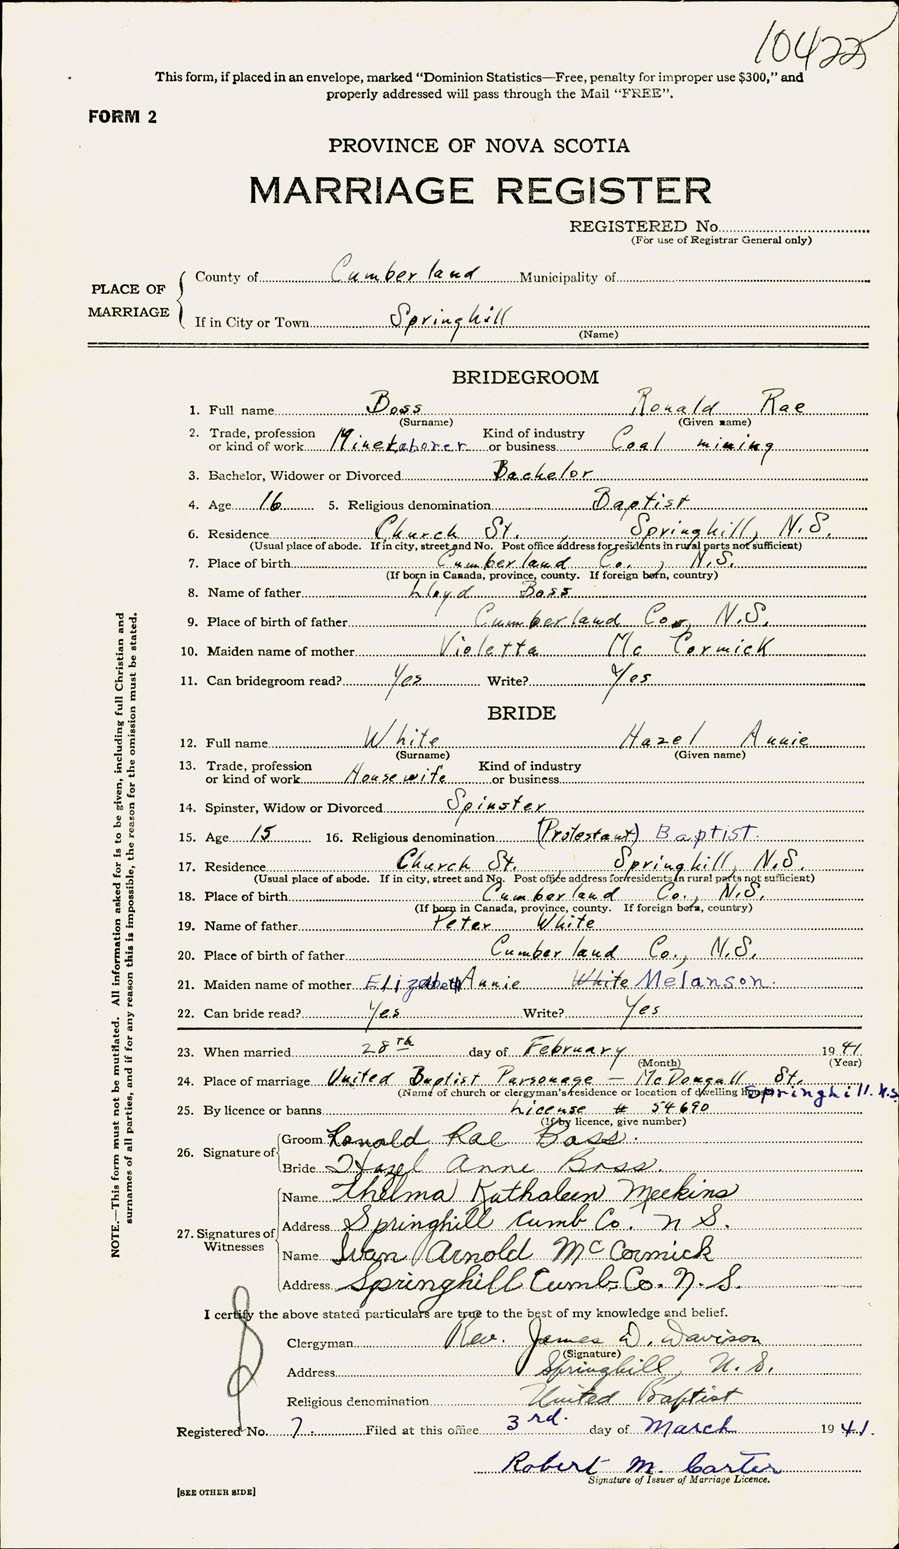 10422
This form, if placed in an envelope, marked "Dominion Statistics—Free, penalty for improper use $300," and
properly addressed will pass through the Mail "FREE".
FORM 2
PROVINCE OF NOVA SCOTIA
MARRIAGE REGISTER
REGISTERED No.
(For use of Registrar General only)
PLACE OF MARRIAGE
County of Cumberland Municipality of
If in City or Town Springhill
(Name)
BRIDEGROOM
1. Full name Boss Ronald Rae
(Surname) (Given name)
2. Trade, profession or kind of work Mine Laborer Kind of industry or business Coal mining
3. Bachelor, Widower or Divorced Bachelor
4. Age 16 5. Religious denomination Baptist
6. Residence Church St., Springhill, N.S.
(Usual place of abode. If in city, street and No. Post office address for residents in rural parts not sufficient)
7. Place of birth Cumberland Co., N.S.
(If born in Canada, province, county. If foreign born, country)
8. Name of father Lloyd Boss
9. Place of birth of father Cumberland Co., N.S.
10. Maiden name of mother Violetta Mc Cormick
11. Can bridegroom read? Yes Write? Yes
BRIDE
12. Full name White Hazel Annie
(Surname) (Given name)
13. Trade, profession or kind of work Housewife Kind of industry or business
14. Spinster, Widow or Divorced Spinster
15. Age 15 16. Religious denomination (Protestant) Baptist.
17. Residence Church St. Springhill, N.S.
(Usual place of abode. If in city, street and No. Post office address for residents in rural parts not sufficient)
18. Place of birth Cumberland Co., N.S.
(If born in Canada, province, county. If foreign born, country)
19. Name of father Peter White
20. Place of birth of father Cumberland Co., N.S.
21. Maiden name of mother Elizabeth Annie White Melanson.
22. Can bride read? Yes Write? Yes
23. When married 28th day of February 1941
(Month) (Year)
24. Place of marriage United Baptist Parsonage — McDougall St. Springhill. N.S.
(Name of church or clergyman's residence or location of dwelling house)
25. By licence or banns License # 54690
(If by licence, give number)
26. Signature of
Groom Ronald Rae Boss.
Bride Hazel Anne Boss.
27. Signatures of Witnesses
Name Thelma Kathaleen Meekins
Address Springhill Cumb Co. N S.
Name Ivan Arnold McCormick
Address Springhill Cumb. Co. N. S.
I certify the above stated particulars are true to the best of my knowledge and belief.
Clergyman Rev. James D. Davison
(Signature)
Address Springhill, N.S.
Religious denomination United Baptist
Registered No. 7. Filed at this office 3rd. day of March 1941.
Robert M. Carter
Signature of Issuer of Marriage Licence.
[SEE OTHER SIDE]
NOTE.—This form must not be mutilated. All information asked for is to be given, including full Christian and
surnames of all parties, and if for any reason this is impossible, the reason for the omission must be stated.